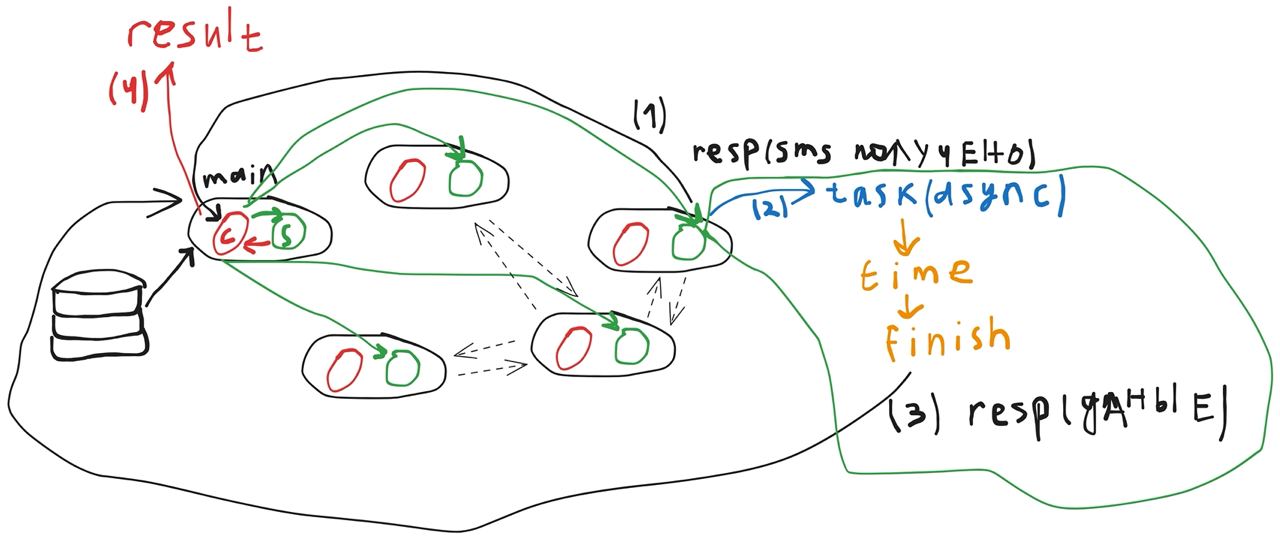 result
(4)
(1)
main
c s
resp(sms получено)
(2) task(async)
time
finish
(3) resp(данные)